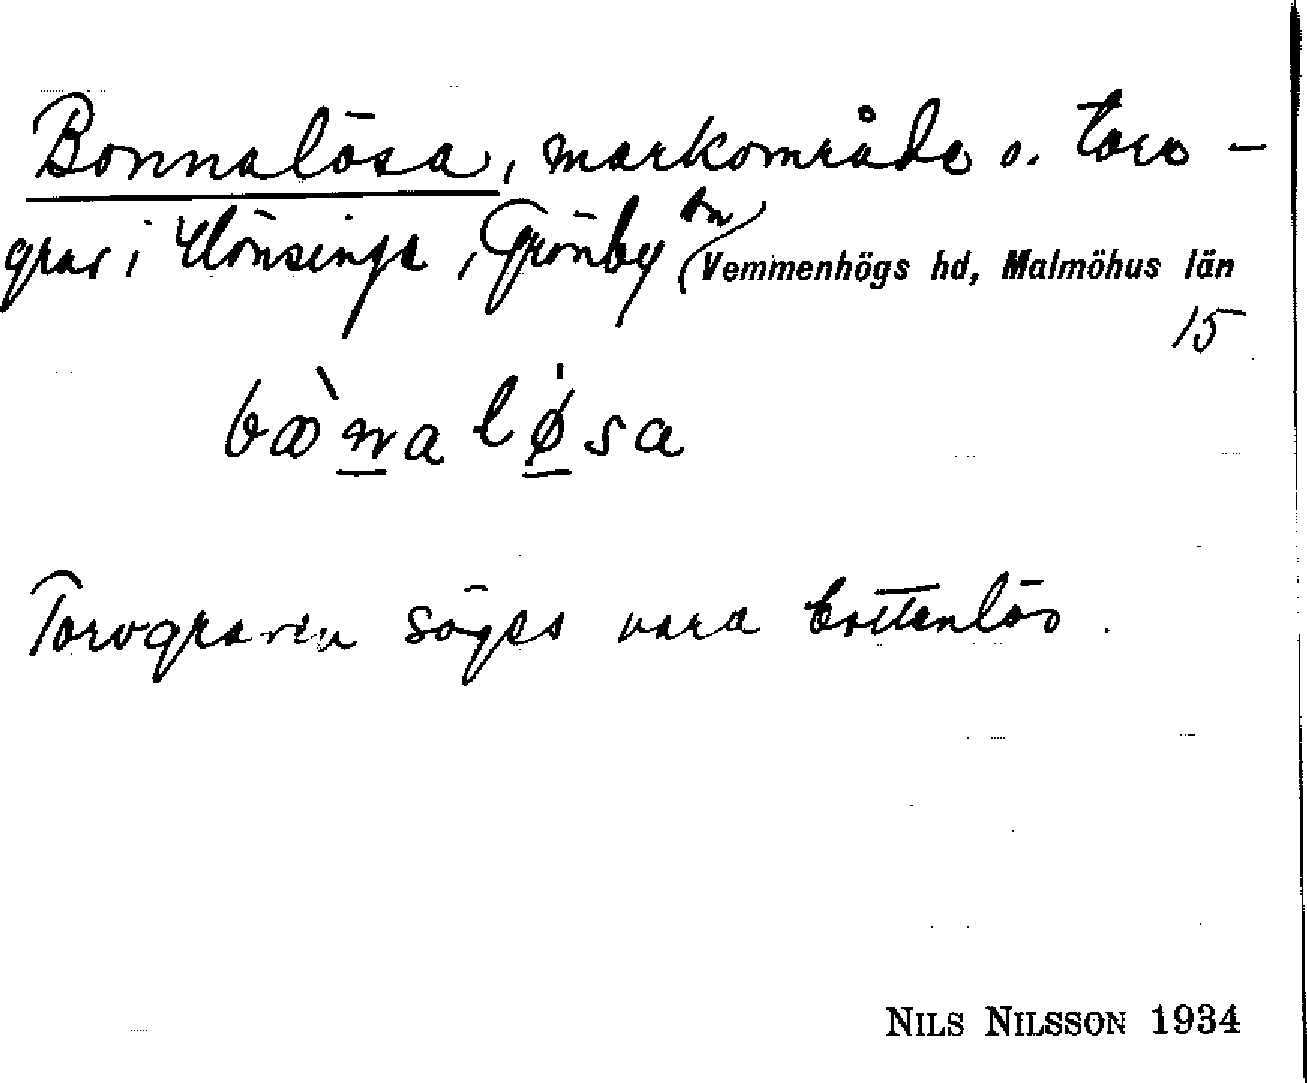 Bonnalösa, markområde o. torv-
grav i Hönsinge, Grönby sn Vemmenhögs hd, Malmöhus län
15
bòn̲alǿ̲sa
Torvgraven säges vara bottenlös.
NILS NILSSON 1934